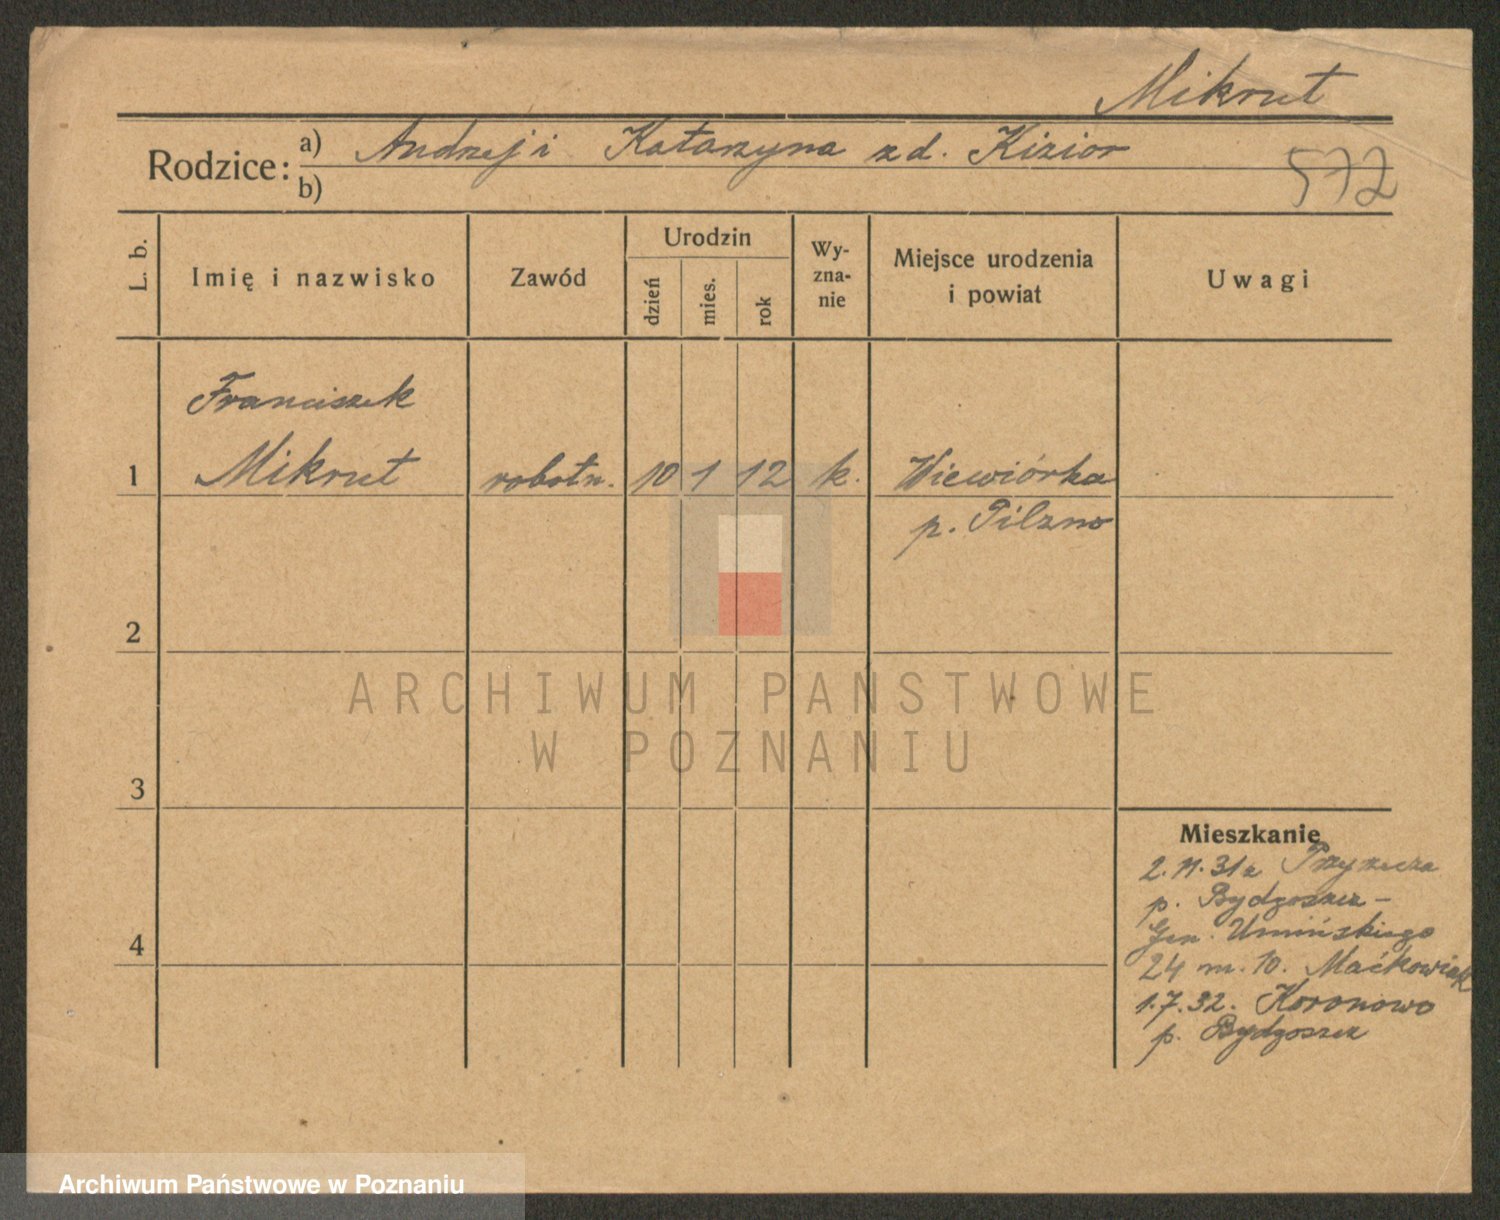 Mikrut
Rodzice: a) Andrzej i Katarzyna z d. Kizior
b)
572
L. b.
Imię i nazwisko
Zawód
Urodzin
dzień
mies.
rok
Wy-
zna-
nie
Miejsce urodzenia
i powiat
Uwagi
Franciszek
1 Mikrut robotn. 10 1 12 k. Wiewiórka
p. Pilzno
2
ARCHIWUM PAŃSTWOWE
W POZNANIU
3
Mieszkanie
2. 11. 31 z
p. Bydgoszcz -
Gen. Umińskiego
4
24 m. 10. Maćkowiak
1.7.32. Koronowo
p. Bydgoszcz
Archiwum Państwowe w Poznaniu